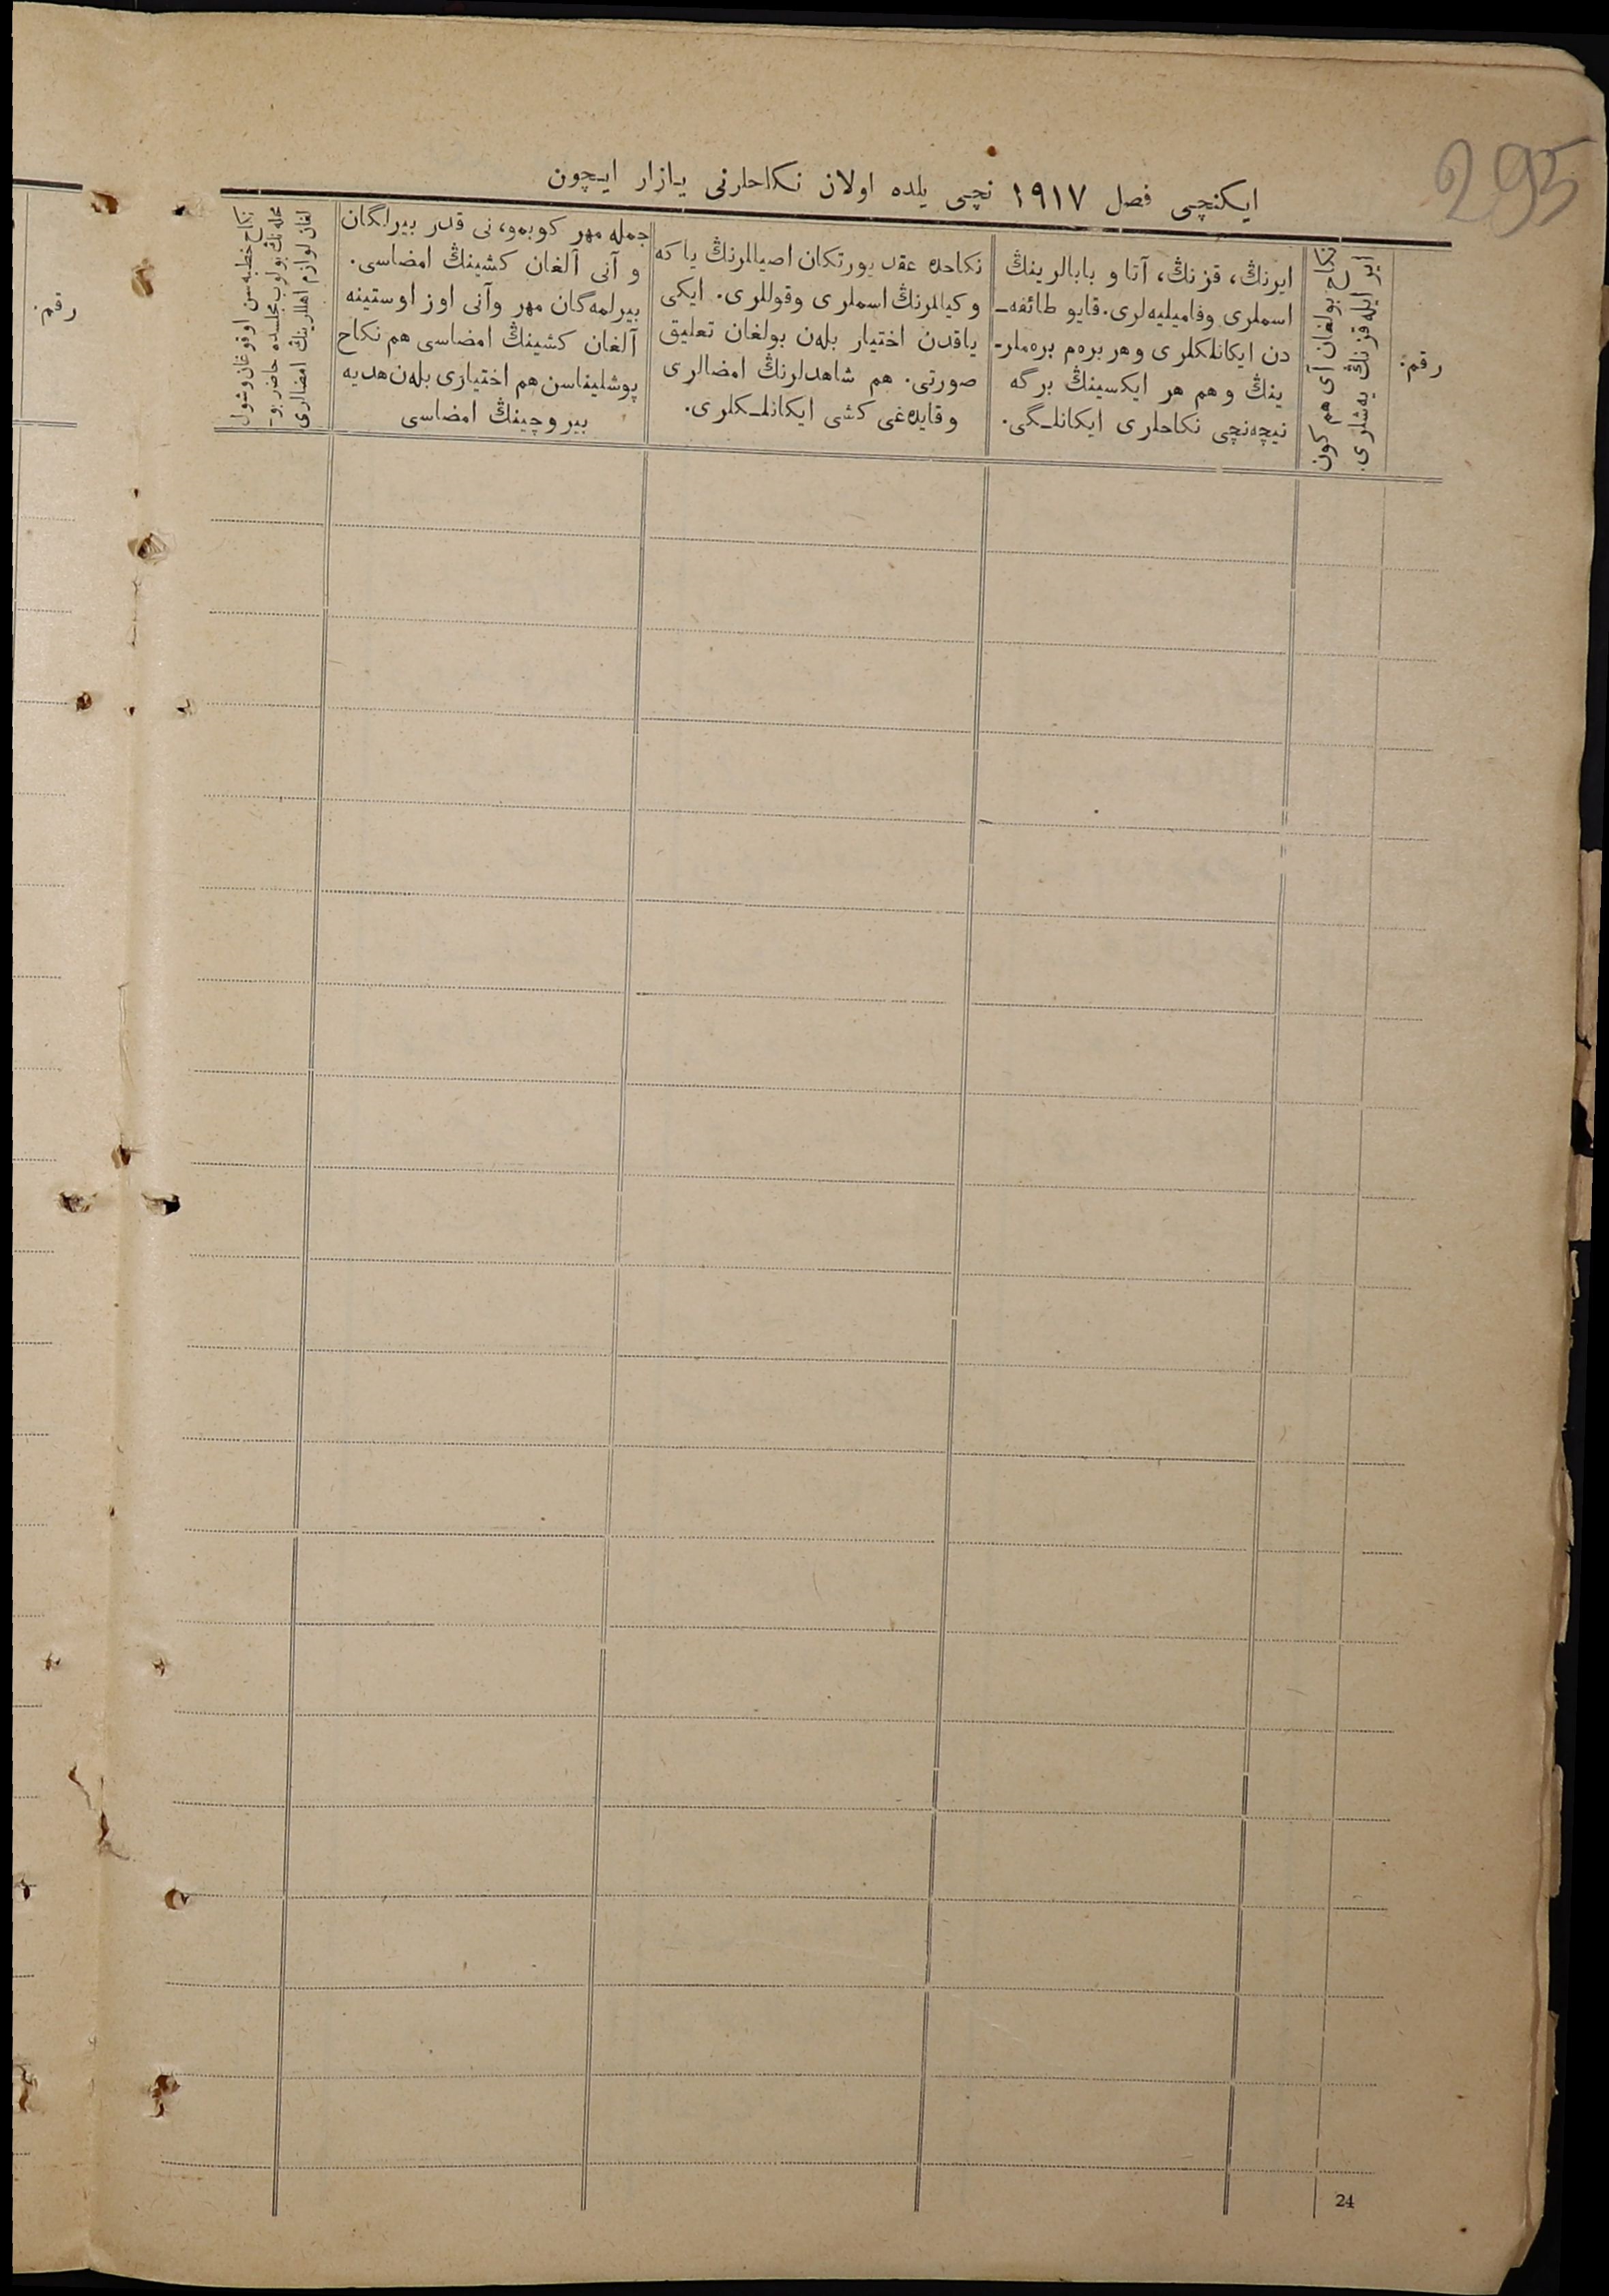 295
ایکنچی فصل ۱۹۱۷ نچی یلده اولان نکاحلرنی یازار ایچون
رقم.
ایر ایله قزنڭ یه‌شلری.
نکاح بولغان آی هم کون
ایرنڭ، قزنڭ، آتا و بابالرینڭ
اسملری وفامیلیه‌لری. قایو طائفه‌ـ
دن ایکانلکلری و هر بره‌م بره‌ملرـ
ینڭ و هم هر ایکسینڭ برگه
نیچه‌نچی نکاحلری ایکانلـگی.
نکاحده عقد یورتکان اصیللرنڭ یا که
وکیللرنڭ اسملری وقوللری. ایکی
یاقدن اختیار بله‌ن بولغان تعلیق
صورتی. هم شاهدلرنڭ امضالری
وقایده‌غی کشی ایکانلـکلری.
جمله مهر کوبمو، نی قدر بیرلگان
و آنی آلغان کشینڭ امضاسی.
بیرلمه‌گان مهر وآنی اوز اوستینه
آلغان کشینڭ امضاسی هم نکاح
پوشلیناسن هم اختیاری بله‌ن هدیه
بیروچینڭ امضاسی
نکاح خطبه‌سن اوقوغان وشول
محله‌نڭ بولوب مجلسده حاضر بوـ
لغان لوازم اهللرینڭ امضالری
رقم.
24